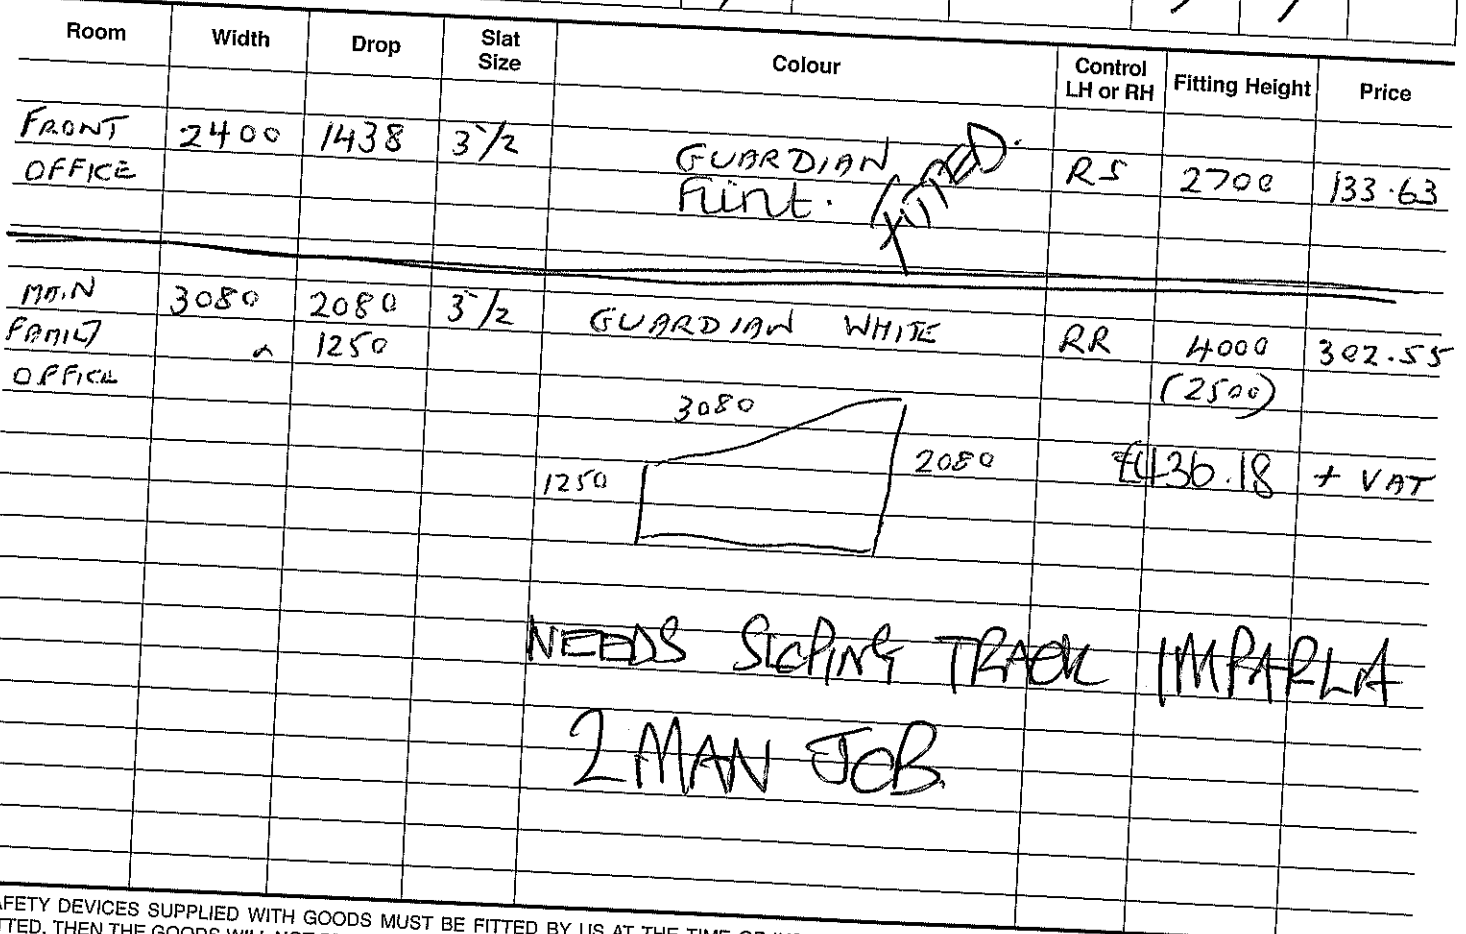 Room Width Drop Slat Size Colour Control LH or RH Fitting Height Price
FRONT 2400 1438 3½ GUARDIAN RS 2700 133.63
OFFICE Flint. FITTED.
MAIN 3080 2080 3½ GUARDIAN WHITE RR 4000 302.55
FAMILY 1250
OFFICE (2500)
3080
1250 2080 £436.18 + VAT
NEEDS SLOPING TRACK IMPARLA
2 MAN JOB.
AFETY DEVICES SUPPLIED WITH GOODS MUST BE FITTED BY US AT THE TIME OF
TTED, THEN THE GOODS WILL NOT